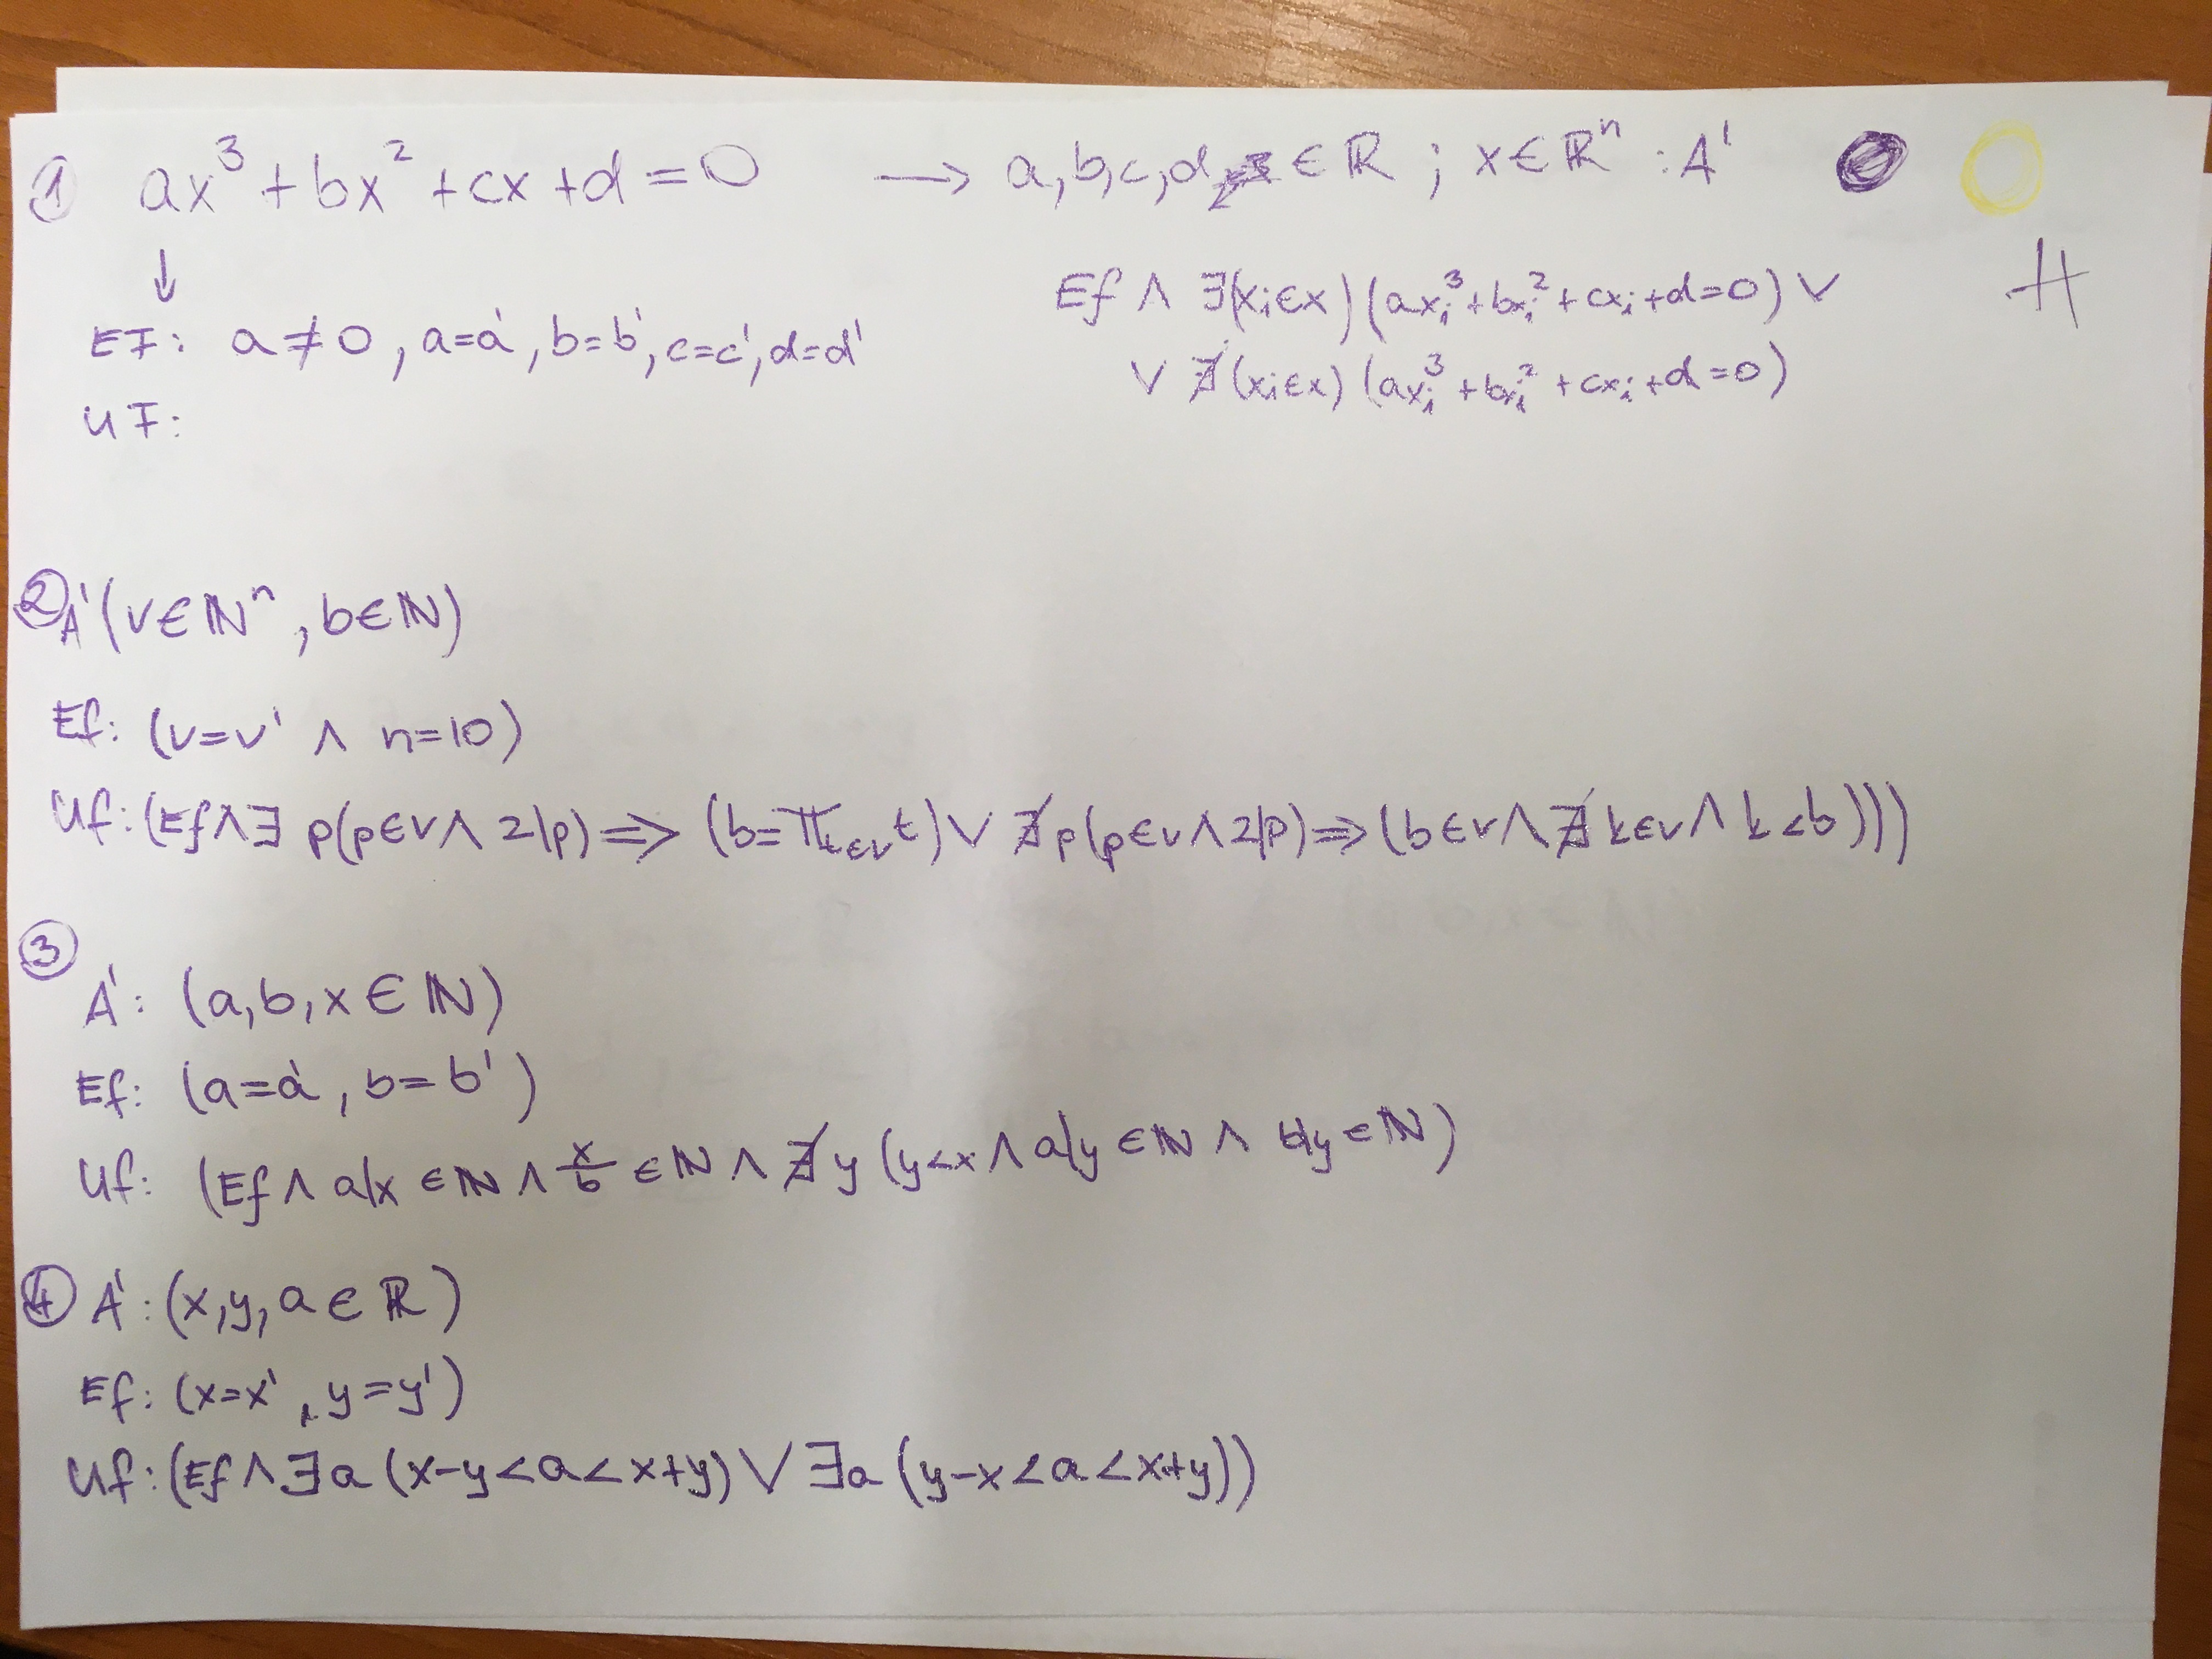 ① ax³ + bx² + cx + d = 0 → a, b, c, d, ∈ ℝ ; x ∈ ℝⁿ : A'
↓
EF: a ≠ 0, a=a', b=b', c=c', d=d'
UF:
Ef ∧ ∃(xᵢ∈x) (axᵢ³ + bxᵢ² + cxᵢ + d = 0) ∨
∨ ∄(xᵢ∈x) (axᵢ³ + bxᵢ² + cxᵢ + d = 0)
H
② A' (v∈ℕⁿ, b∈ℕ)
Ef: (v=v' ∧ n=10)
Uf: (Ef ∧ ∃ p(p∈v ∧ 2|p) ⇒ (b=π_{t∈v} t) ∨ ∄p(p∈v ∧ 2|p) ⇒ (b∈v ∧ ∄ k∈v ∧ k<b)))
③
A': (a, b, x ∈ ℕ)
Ef: (a=a', b=b')
Uf: (Ef ∧ a|x ∈ℕ ∧ x/b ∈ℕ ∧ ∄ y (y<x ∧ a|y ∈ℕ ∧ b|y ∈ℕ)
④ A': (x, y, a ∈ ℝ)
Ef: (x=x', y=y')
Uf: (Ef ∧ ∃a (x-y<a<x+y) ∨ ∃a (y-x<a<x+y))